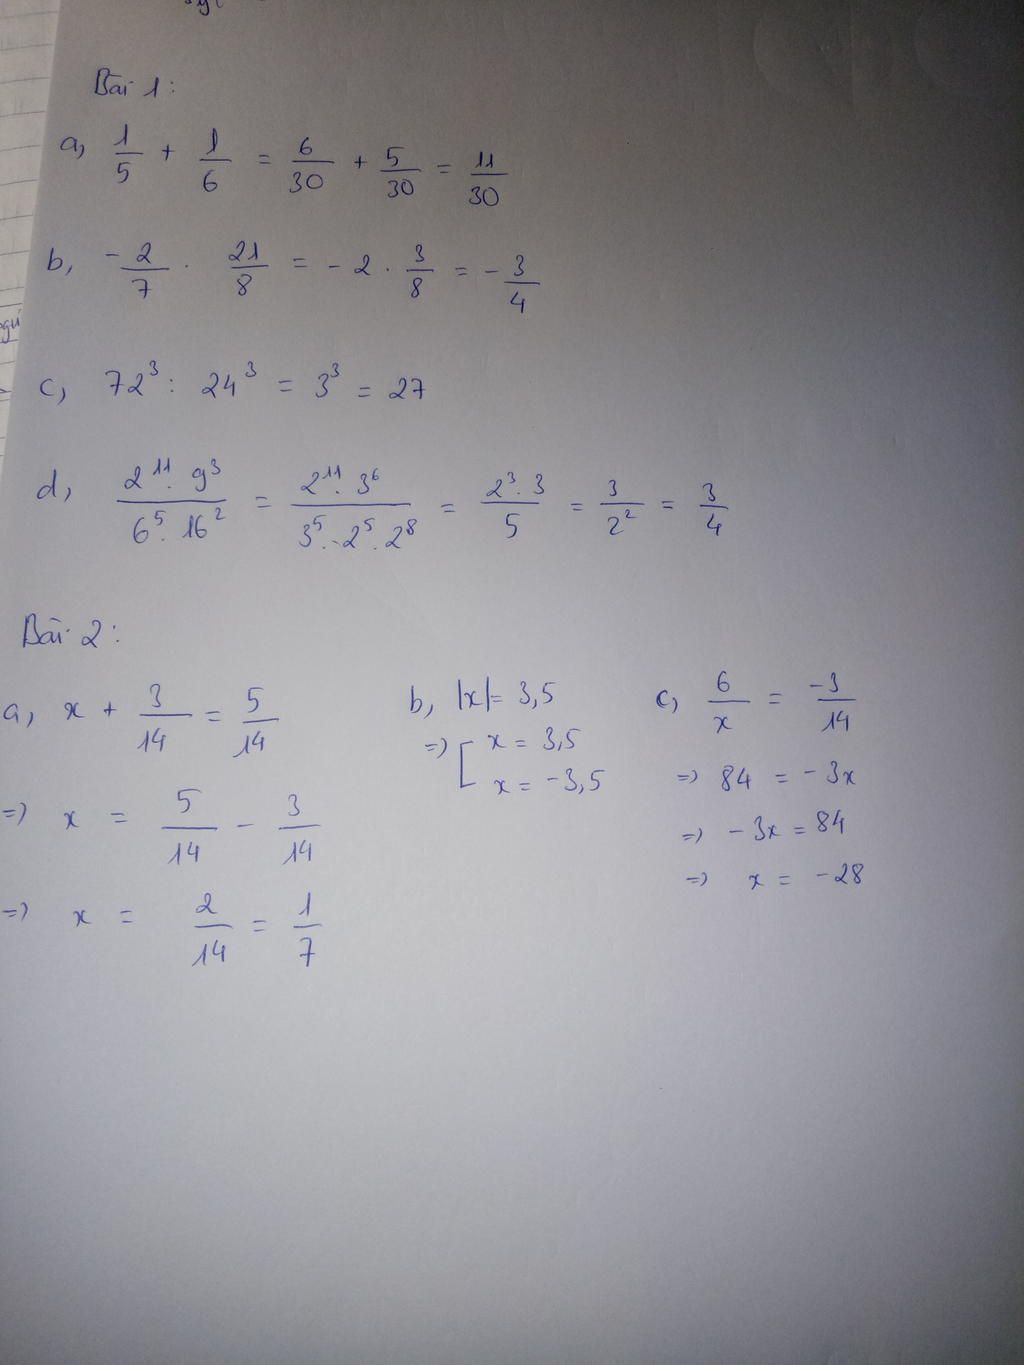 Bài 1:
a, 1/5 + 1/6 = 6/30 + 5/30 = 11/30
b, -2/7 . 21/8 = -2 . 3/8 = -3/4
c, 72³ : 24³ = 3³ = 27
d, 2¹¹.9³/6⁵.16² = 2¹¹.3⁶/3⁵.2⁵.2⁸ = 2³.3/5 = 3/2² = 3/4
Bài 2:
a, x + 3/14 = 5/14
=> x = 5/14 - 3/14
=> x = 2/14 = 1/7
b, |x| = 3,5
=> [ x = 3,5
x = -3,5
c, 6/x = -3/14
=> 84 = -3x
=> -3x = 84
=> x = -28